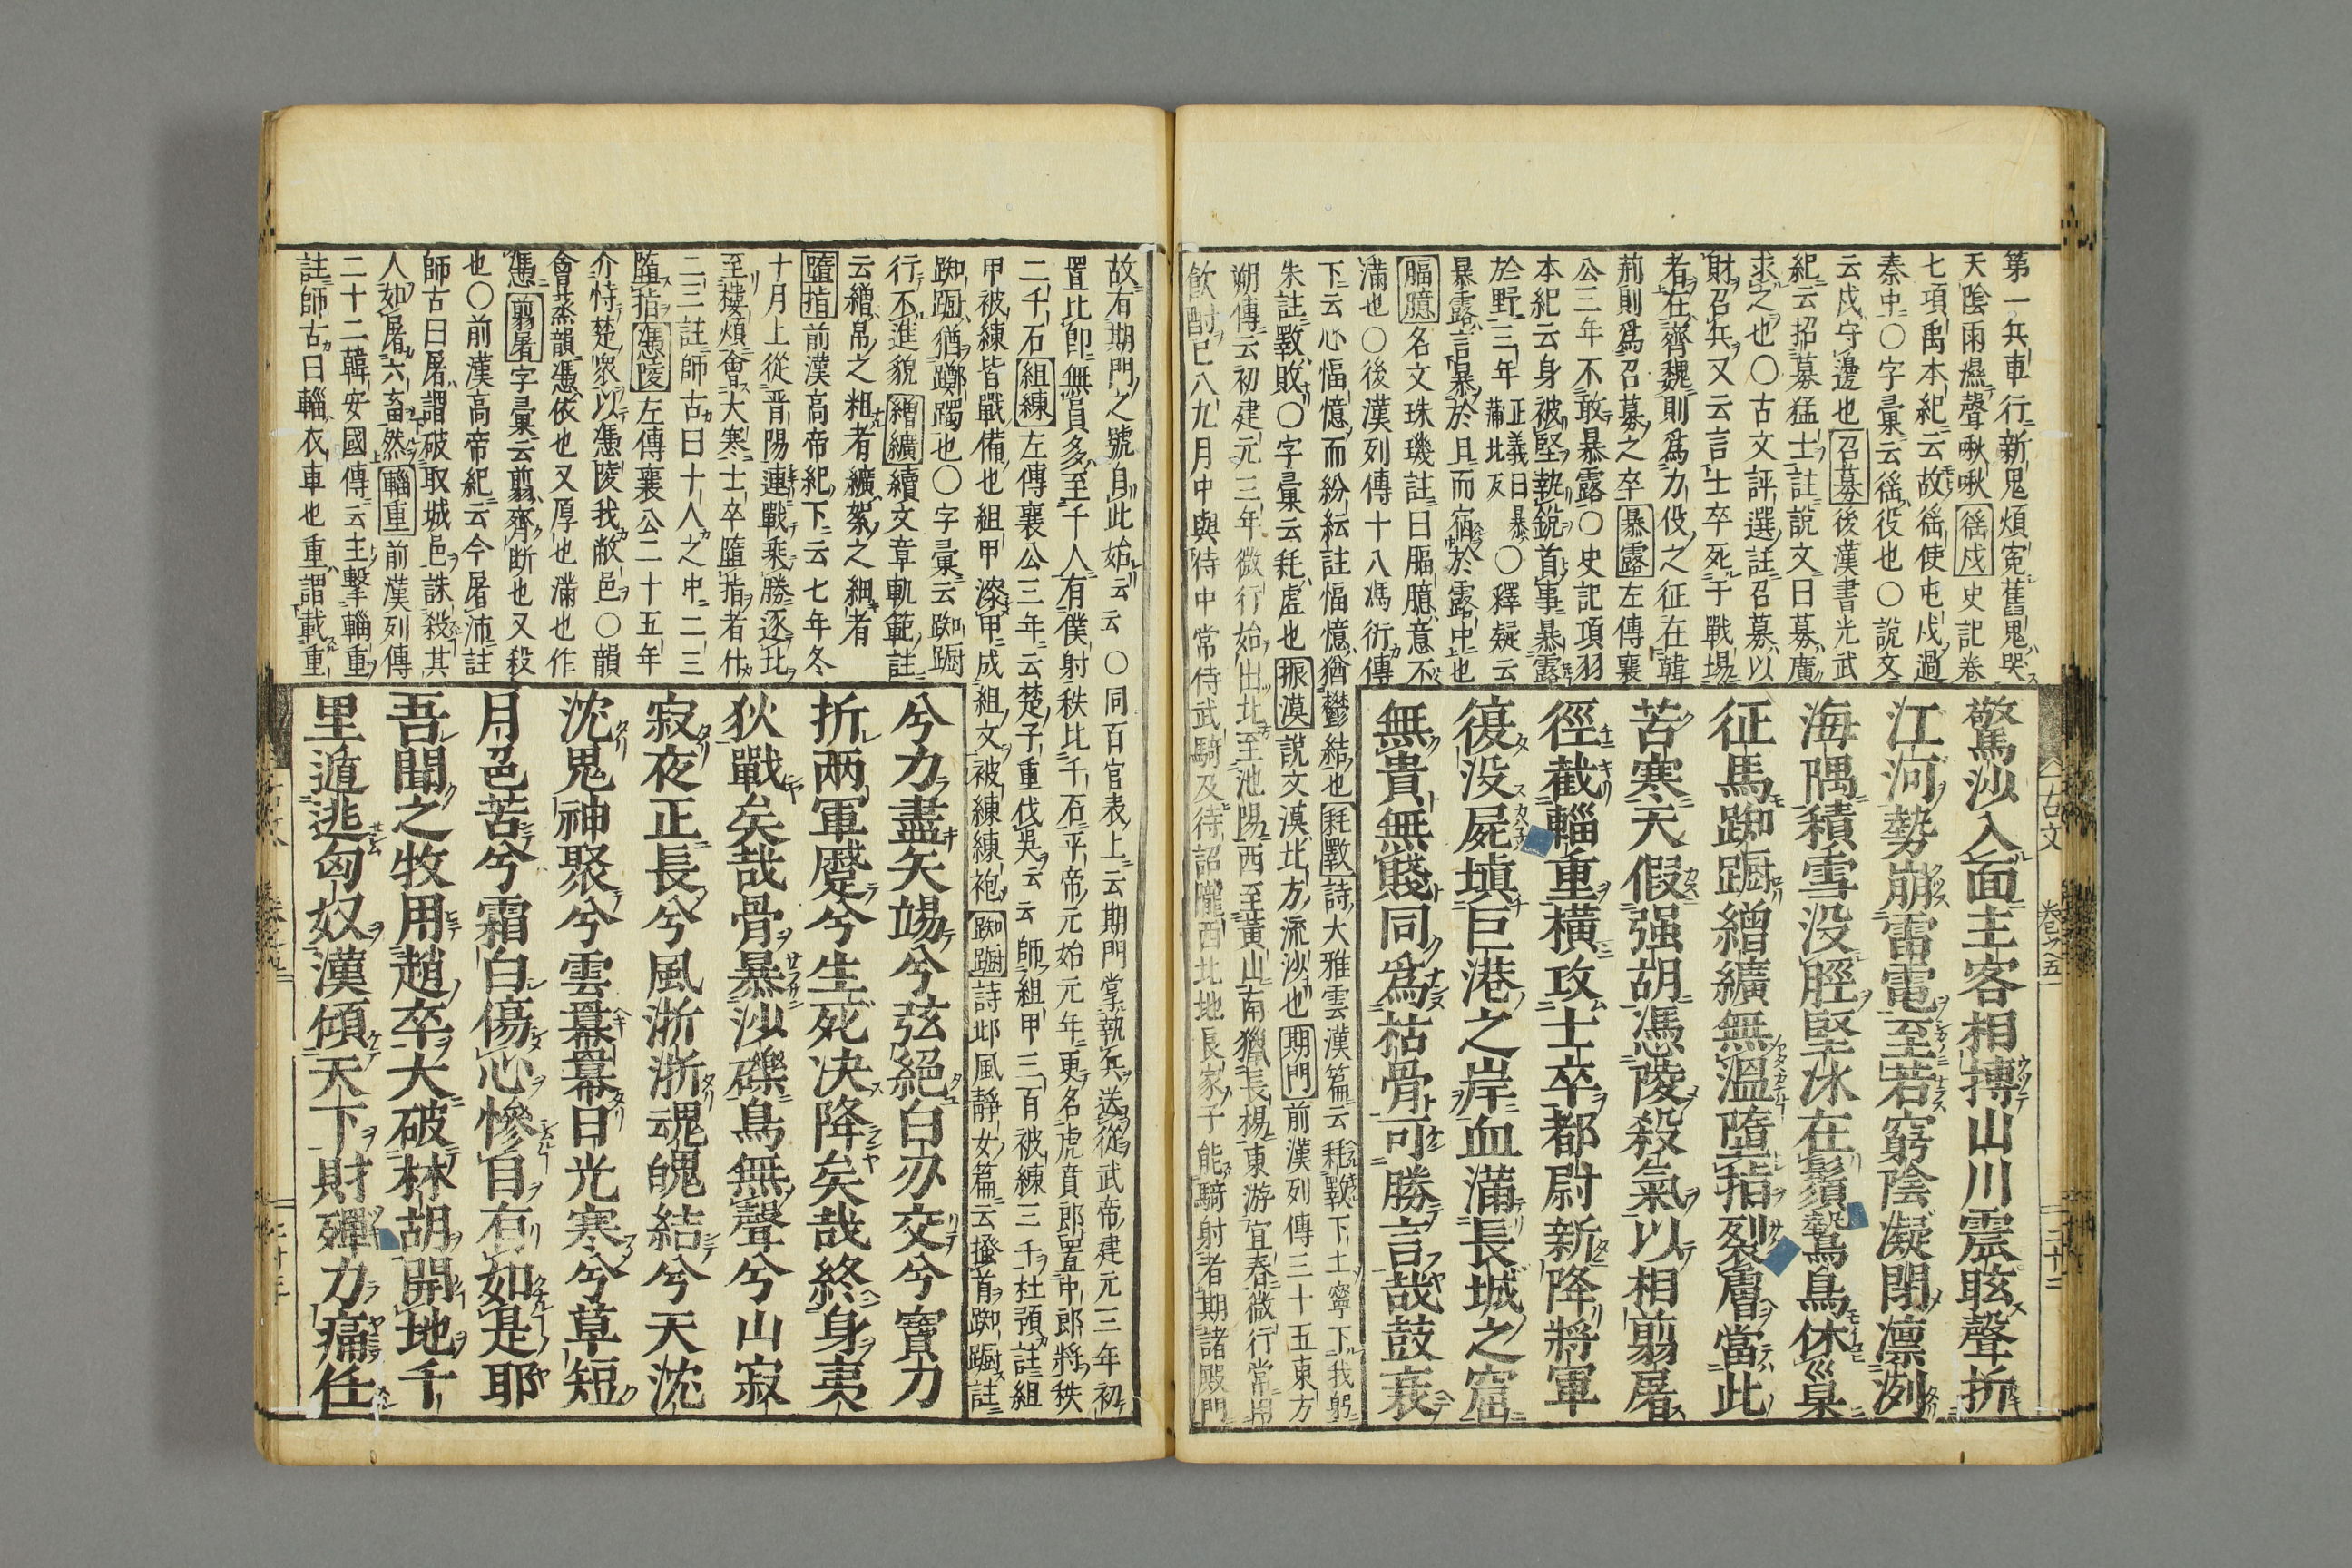 第一兵車行新鬼煩寃舊鬼哭
天陰雨濕聲啾啾徭戍史記卷
七項禹本紀云故徭使屯戍過
秦中○字彙云徭役也○說文
云戍守邊也召募後漢書光武
紀云招募猛士註說文曰募廣
求之也○古文評選註召募以
財召兵又云言士卒死于戰場
者在齊魏則爲力役之征在韓
荊則爲召募之卒暴露左傳襄
公三年不敢暴露○史記項羽
本紀云身被堅執銳首事暴露
於野三年正義曰暴蒲北反○釋疑云
暴露言暴於且而宿於露中也
腷臆名文珠璣註曰腷臆意不
滿也○後漢列傳十八馮衍傳
下云心愊憶而紛紜註愊憶猶鬱結也耗斁詩大雅雲漢篇云耗斁下土寧下我躬
朱註斁敗○字彙云耗虛也振漠說文漠北方流沙也期門前漢列傳三十五東方
朔傳云初建元三年微行始出北至池陽西至黃山南獵長楊東游宜春微行常用
飲酎已八九月中與侍中常侍武騎及待詔隴西北地良家子能騎射者期諸殿門
驚沙入面主客相搏山川震眩聲折
江河勢崩雷電至若窮陰凝閉凛冽
海隅積雪没脛堅氷在鬚鷙鳥休巢
征馬踟蹰繒纊無溫墮指裂膚當此
苦寒天假强胡憑陵殺氣以相翦屠
徑截輜重橫攻士卒都尉新降將軍
復没屍塡巨港之岸血滿長城之窟
無貴無賤同爲枯骨可勝言哉鼓衰
古文 卷之五 三十二
故有期門之號自此始云云○同百官表上云期門掌執兵送從武帝建元三年初
置比郎無員多至千人有僕射秩比千石平帝元始元年更名虎賁郎置中郎將秩
二千石組練左傳襄公三年云楚子重伐吳云云師組甲三百被練三千杜預註組
甲被練皆戰備也組甲漆甲成組文被練練袍踟蹰詩邶風靜女篇云搔首踟蹰註
踟蹰猶躑躅也○字彙云踟蹰
行不進貌繒纊續文章軌範註
云繒帛之粗者纊絮之細者
墮指前漢高帝紀下云七年冬
十月上從晋陽連戰乘勝逐北
至樓煩會大寒士卒墮指者什
二三註師古曰十人之中二三
墮指憑陵左傳襄公二十五年
介恃楚衆以憑陵我敝邑○韻
會蒸韻憑依也又厚也滿也作
憑翦屠字彙云翦齊斷也又殺
也○前漢高帝紀云今屠沛註
師古曰屠謂破取城邑誅殺其
人如屠六畜然輜重前漢列傳
二十二韓安國傳云主擊輜重
註師古曰輜衣車也重謂載重
兮力盡矢竭兮弦絕白刃交兮寶刀
折两軍蹙兮生死决降矣哉終身夷
狄戰矣哉骨暴沙礫鳥無聲兮山寂
寂夜正長兮風淅淅魂魄結兮天沈
沈鬼神聚兮雲冪冪日光寒兮草短
月色苦兮霜白傷心慘目有如是耶
吾聞之牧用趙卒大破林胡開地千
里遁逃匈奴漢傾天下財殫力痡任